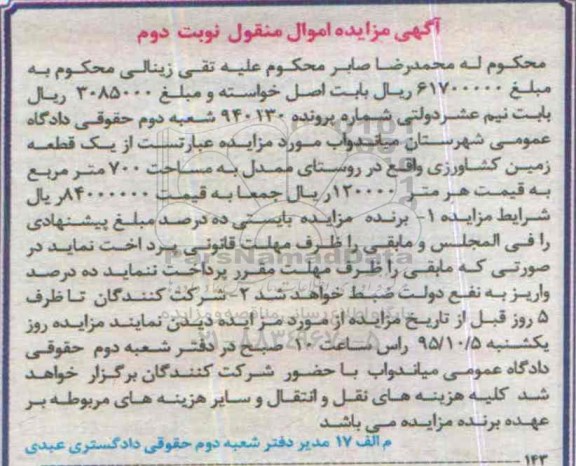 آگهی مزایده اموال منقول نوبت دوم
محکوم له محمدرضا صابر محکوم علیه تقی زینالی محکوم به
مبلغ ۶۱۷۰۰۰۰۰ ریال بابت اصل خواسته و مبلغ ۳۰۸۵۰۰۰ ریال
بابت نیم عشردولتی شماره پرونده ۹۴۰۱۳۰ شعبه دوم حقوقی دادگاه
عمومی شهرستان میاندواب مورد مزایده عبارتست از یک قطعه
زمین کشاورزی واقع در روستای ممدل به مساحت ۷۰۰ متر مربع
به قیمت هر متر ۱۲۰۰۰۰ ریال جمعا به قیمت ۸۴۰۰۰۰۰۰ ریال
شرایط مزایده ۱- برنده مزایده بایستی ده درصد مبلغ پیشنهادی
را فی المجلس و مابقی را ظرف مهلت قانونی پرداخت نماید در
صورتی که مابقی را ظرف مهلت مقرر پرداخت ننماید ده درصد
واریز به نفع دولت ضبط خواهد شد ۲- شرکت کنندگان تا ظرف
۵ روز قبل از تاریخ مزایده از مورد مزایده دیدن نمایند مزایده روز
یکشنبه ۹۵/۱۰/۵ راس ساعت ۱۰ صبح در دفتر شعبه دوم حقوقی
دادگاه عمومی میاندواب با حضور شرکت کنندگان برگزار خواهد
شد کلیه هزینه های نقل و انتقال و سایر هزینه های مربوطه بر
عهده برنده مزایده می باشد
م الف ۱۷ مدیر دفتر شعبه دوم حقوقی دادگستری عبدی
۱۴۳
ParsNamadData